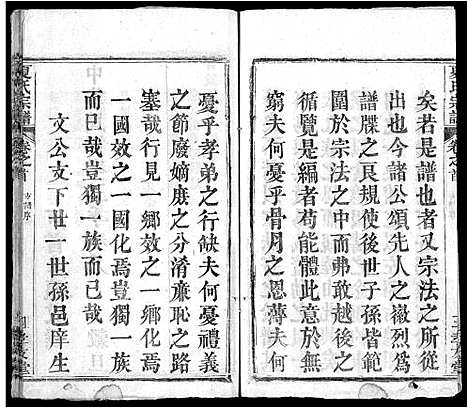 矣若是譜也者又宗法之所從
出也今諸公頌先人之徽烈爲
譜牒之良規使後世子孫皆範
圍於宗法之中而弗敢越後之
循覽是編者苟能體此意於無
窮夫何憂乎骨月之恩薄夫何
夏氏宗譜 卷之首
憂乎孝弟之行缺夫何憂禮義
之節廢嫡庶之分淆廉恥之路
塞哉行見一鄉效之一鄉化焉
一國效之一國化焉豈獨一族
而已哉豈獨一族而已哉
文公支下廿一世孫邑庠生
夏氏宗譜 卷之首